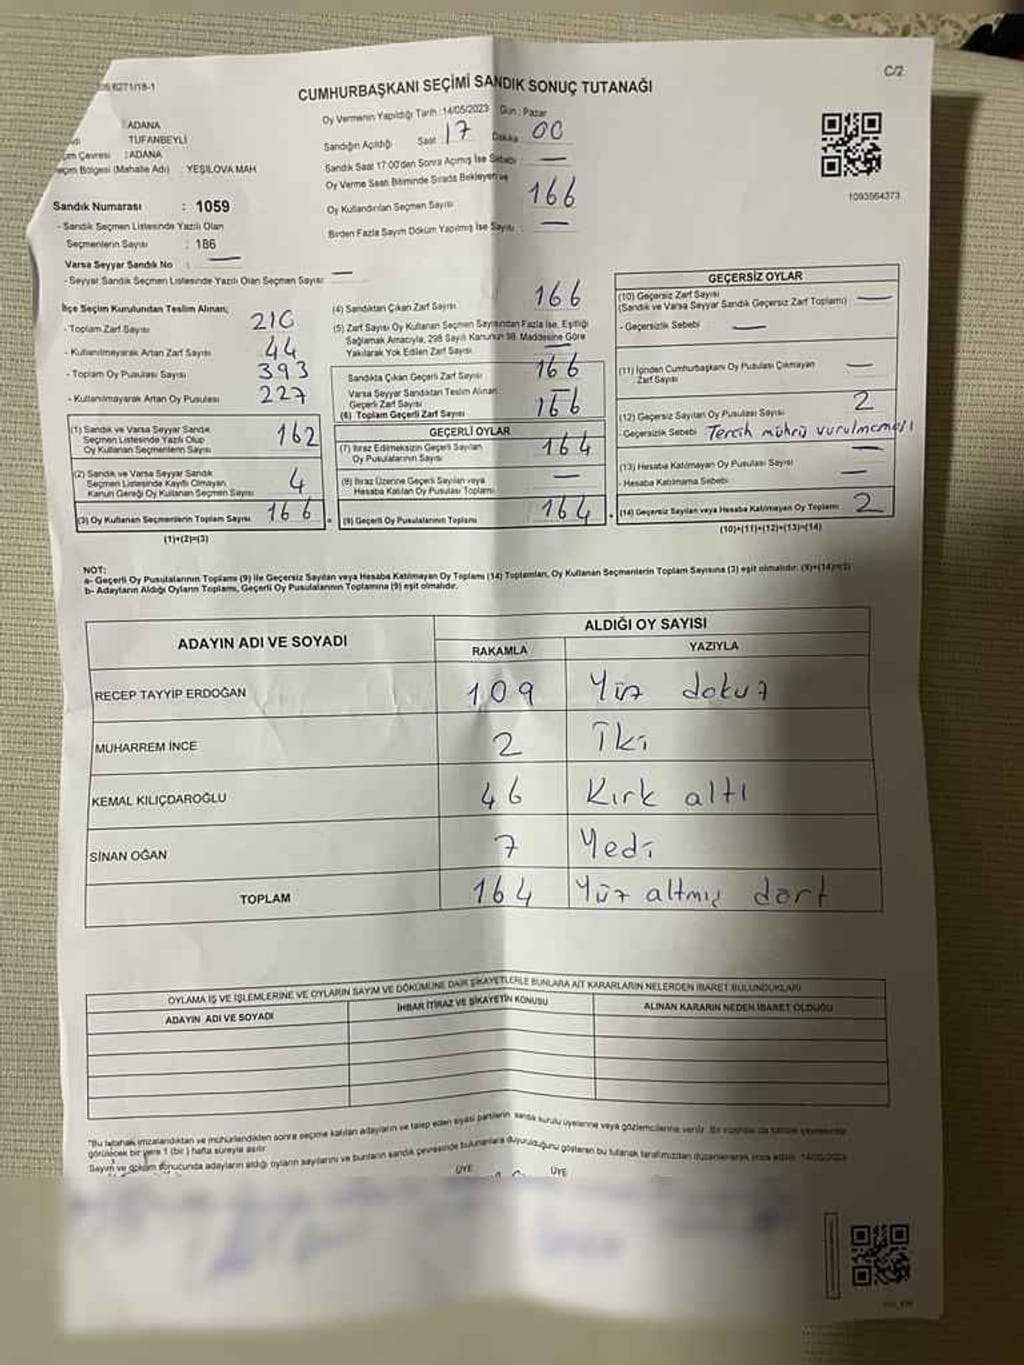 6271/18-1
C/2
CUMHURBAŞKANI SEÇİMİ SANDIK SONUÇ TUTANAĞI
: ADANA
TUFANBEYLİ
Çevresi : ADANA
Bölgesi (Mahalle Adı) YEŞİLOVA MAH
Sandık Numarası : 1059
- Sandık Seçmen Listesinde Yazılı Olan
Seçmenlerin Sayısı : 186
Varsa Seyyar Sandık No : —
- Seyyar Sandık Seçmen Listesinde Yazılı Olan Seçmen Sayısı : —
Oy Vermenin Yapıldığı Tarih : 14/05/2023 Gün : Pazar
Sandığın Açıldığı Saat : 17 Dakika : 00
Sandık Saat 17:00'den Sonra Açılmış İse Sebebi : —
Oy Verme Saati Bitiminde Sırada Bekleyen ve
Oy Kullandırılan Seçmen Sayısı 166
Birden Fazla Sayım Döküm Yapılmış İse Sayısı : —
1093564373
İlçe Seçim Kurulundan Teslim Alınan;
- Toplam Zarf Sayısı 210
- Kullanılmayarak Artan Zarf Sayısı 44
- Toplam Oy Pusulası Sayısı 393
- Kullanılmayarak Artan Oy Pusulası 227
(1) Sandık ve Varsa Seyyar Sandık
Seçmen Listesinde Yazılı Olup
Oy Kullanan Seçmenlerin Sayısı 162
(2) Sandık ve Varsa Seyyar Sandık
Seçmen Listesinde Kayıtlı Olmayan
Kanun Gereği Oy Kullanan Seçmen Sayısı 4
(3) Oy Kullanan Seçmenlerin Toplam Sayısı 166
(1)+(2)=(3)
(4) Sandıktan Çıkan Zarf Sayısı 166
(5) Zarf Sayısı Oy Kullanan Seçmen Sayısından Fazla İse, Eşitliği
Sağlamak Amacıyla, 298 Sayılı Kanunun 98. Maddesine Göre
Yakılarak Yok Edilen Zarf Sayısı —
Sandıkta Çıkan Geçerli Zarf Sayısı 166
Varsa Seyyar Sandıktan Teslim Alınan
Geçerli Zarf Sayısı —
(6) Toplam Geçerli Zarf Sayısı 166
GEÇERLİ OYLAR
(7) İtiraz Edilmeksizin Geçerli Sayılan
Oy Pusulalarının Sayısı 164
(8) İtiraz Üzerine Geçerli Sayılan veya
Hesaba Katılan Oy Pusulası Toplamı —
= (9) Geçerli Oy Pusulalarının Toplamı 164
GEÇERSİZ OYLAR
(10) Geçersiz Zarf Sayısı
(Sandık ve Varsa Seyyar Sandık Geçersiz Zarf Toplamı) —
- Geçersizlik Sebebi —
(11) İçinden Cumhurbaşkanı Oy Pusulası Çıkmayan
Zarf Sayısı —
(12) Geçersiz Sayılan Oy Pusulası Sayısı 2
- Geçersizlik Sebebi Tercih mührü vurulmaması
(13) Hesaba Katılmayan Oy Pusulası Sayısı —
- Hesaba Katılmama Sebebi —
+ (14) Geçersiz Sayılan veya Hesaba Katılmayan Oy Toplamı 2
(10)+(11)+(12)+(13)=(14)
NOT:
a- Geçerli Oy Pusulalarının Toplamı (9) ile Geçersiz Sayılan veya Hesaba Katılmayan Oy Toplamı (14) Toplamları, Oy Kullanan Seçmenlerin Toplam Sayısına (3) eşit olmalıdır. (9)+(14)=(3)
b- Adayların Aldığı Oyların Toplamı, Geçerli Oy Pusulalarının Toplamına (9) eşit olmalıdır.
ADAYIN ADI VE SOYADI
ALDIĞI OY SAYISI
RAKAMLA YAZIYLA
RECEP TAYYİP ERDOĞAN 109 Yüz dokuz
MUHARREM İNCE 2 İki
KEMAL KILIÇDAROĞLU 46 Kırk altı
SİNAN OĞAN 7 Yedi
TOPLAM 164 Yüz altmış dört
OYLAMA İŞ VE İŞLEMLERİNE VE OYLARIN SAYIM VE DÖKÜMÜNE DAİR ŞİKAYETLERLE BUNLARA AİT KARARLARIN NELERDEN İBARET BULUNDUKLARI
ADAYIN ADI VE SOYADI İHBAR İTİRAZ VE ŞİKAYETİN KONUSU ALINAN KARARIN NEDEN İBARET OLDUĞU
"Bu tutanak imzalandıktan ve mühürlendikten sonra seçime katılan adayların ve talep eden siyasi partilerin sandık kurulu üyelerine veya gözlemcilerine verilir. Bir nüshası da sandık çevresinde
görülecek bir yere 1 (bir) hafta süreyle asılır
Sayım ve döküm sonucunda adayların aldığı oyların sayılarını ve bunların sandık çevresinde bulunanlara duyurulduğunu gösteren bu tutanak tarafımızdan düzenlenerek imza edildi. 14/05/2023
ÜYE ÜYE